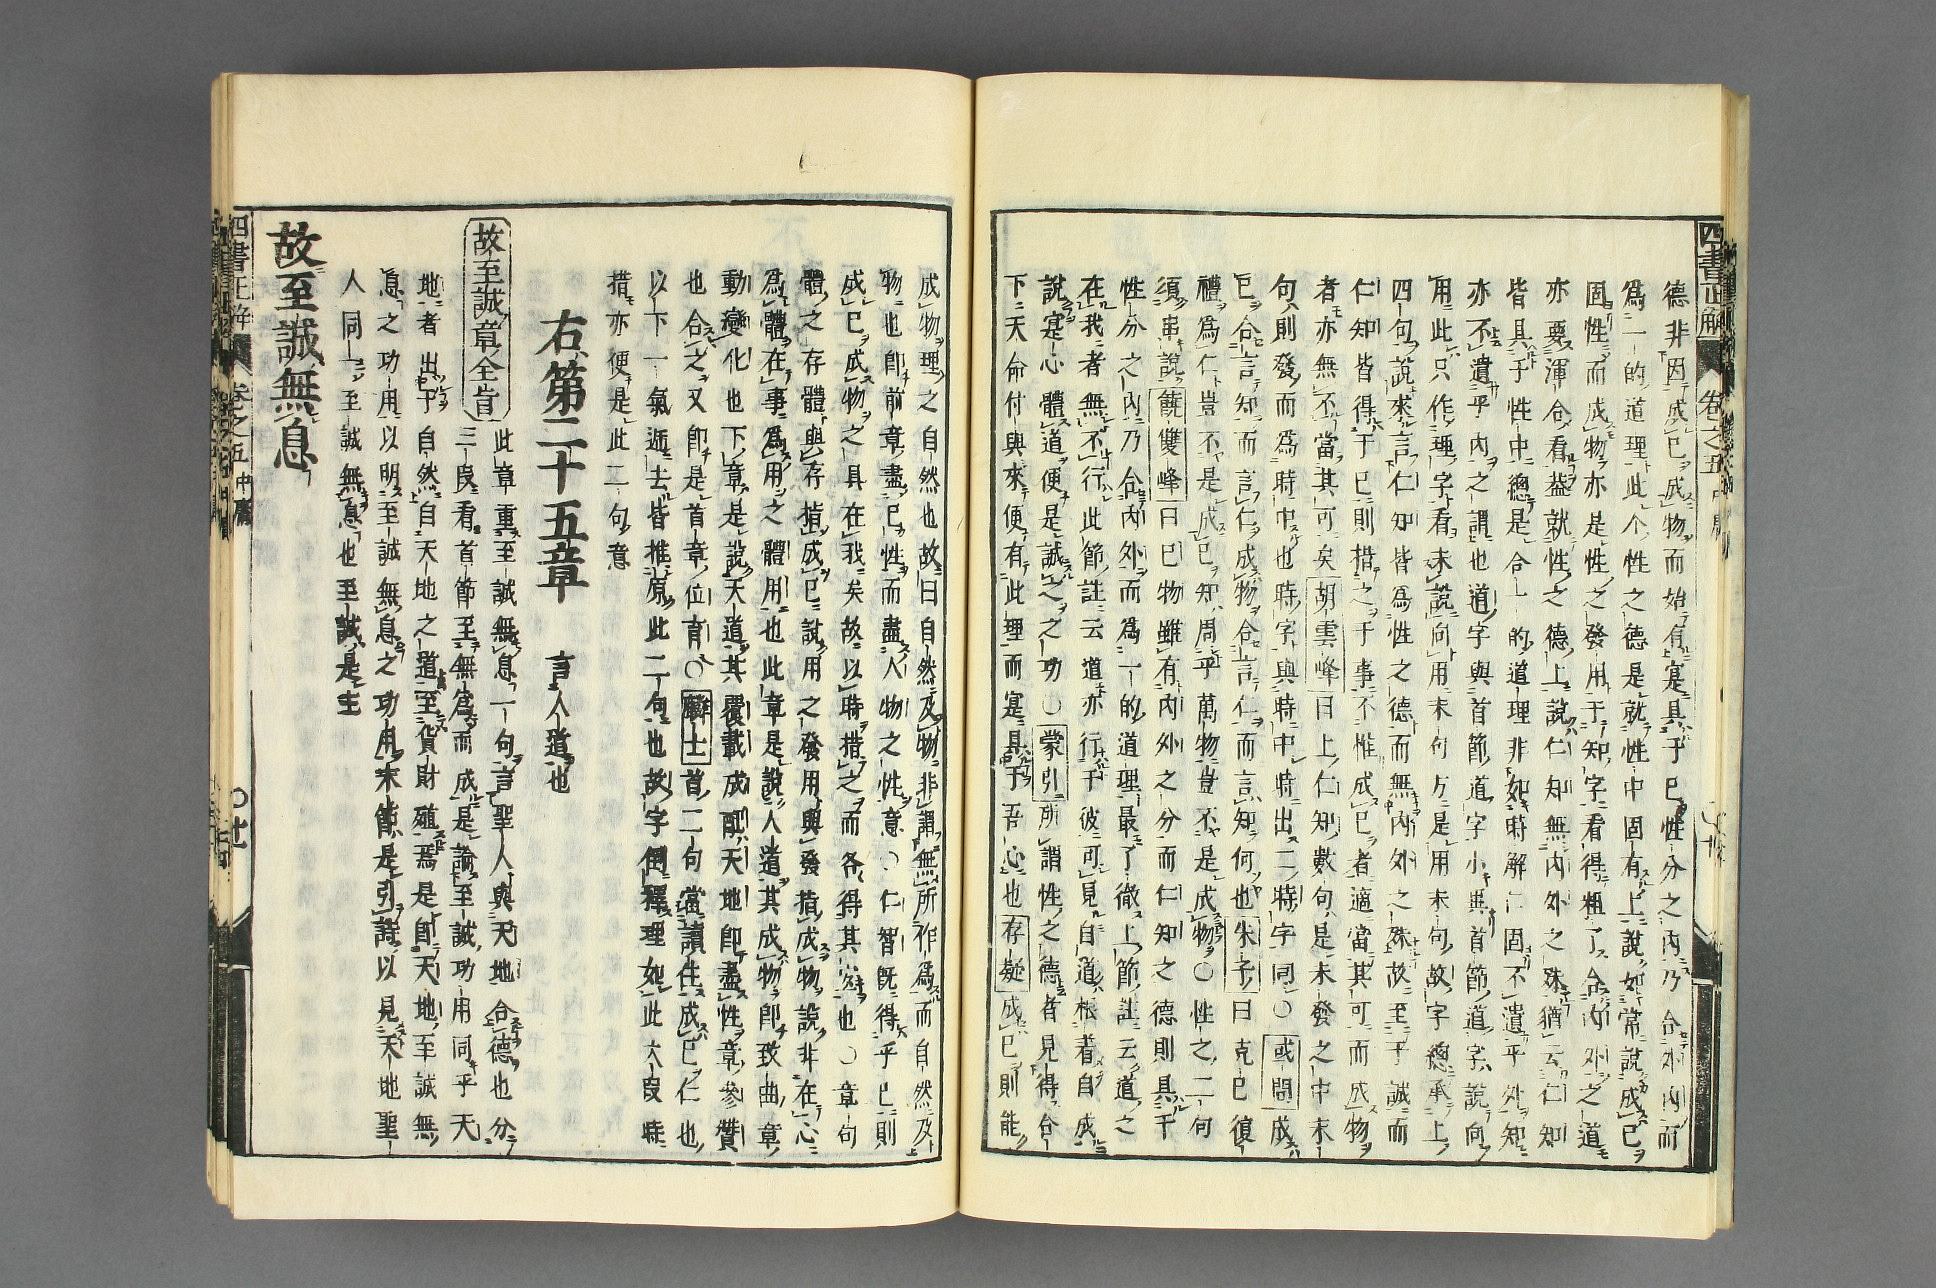 四書正解
卷之五
德非因成己成物而始有寔具于己性分之内乃合外内而
爲一的道理此个性之德是就性中固有上說如常說成己
固性而成物亦是性之發用于知字看得粗了合内外之道
亦要渾合看葢就性之德上說仁知無内外之殊猶云仁知
皆具于性中總是合一的道理非如時解仁固不遺乎外知
亦不遺乎内之謂也道字與首節道字小異首節道字說向
用此只作理字看未說向用末句方是用末句故字總承上
四句說來言仁知皆爲性之德而無内外之殊故至于誠而
仁知皆得于己則措之于事不惟成己者適當其可而成物
者亦無不當其可矣胡雲峰曰上仁知數句是未發之中末一
句則發而爲時中也時字與時中時出二時字同○或問成
己合言知而言仁成物合言仁而言知何也朱子曰克己復
禮爲仁豈不是成己知周乎萬物豈不是成物○性之二句
須串說饒雙峰曰己物雖有内外之分而仁知之德則具于
性分之内乃合内外而爲一的道理最了徹上節註云道之
在我者無不行此節註云道亦行于彼可見自道根着自成
說寔心體道便是誠之之功○蒙引所謂性之德者見得合
下天命付與來便有此理而寔具于吾心也存疑成己則能
成物理之自然也故曰自然及物非謂無所作爲而自然及
物也卽前章盡己性而盡人物之性意○仁智旣得乎己則
成己成物之具在我矣故以時措之而各得其宜也○章句
體之存體與存措成己說用之發用與發措成物說非在心
爲體在事爲用之體用也此章是說人道其成物卽致曲章
動變化也下章是說天道其覆載成配天地卽盡性章參贊
也合之又卽是首章位育○麟士首二句當讀住成己仁也
以下一氣遞去皆推原此二句也故字倒釋理如此六段時
措亦便是此二句意
右第二十五章 言人道也
故至誠章全旨
此章重至誠無息一句言聖人與天地合德也分
三段看首節至無爲而成是論至誠功用同乎天
地者出于自然自天地之道至貨財殖焉是卽天地至誠無
息之功用以明至誠無息之功用末節是引詩以見天地聖
人同一至誠無息也至誠是主
故至誠無息
四書正解
卷之五
中庸